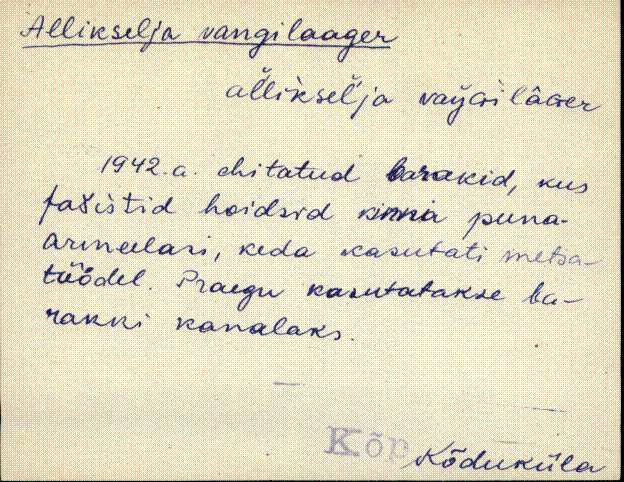 Allikselja vangilaager
1942.a. ehitatud barakid, kus
fašistid hoidsid kinni puna-
armeelasi, keda kasutati metsa-
töödel. Praegu kasutatakse ba-
rakki kanalaks.
Kõp
Kõduküla